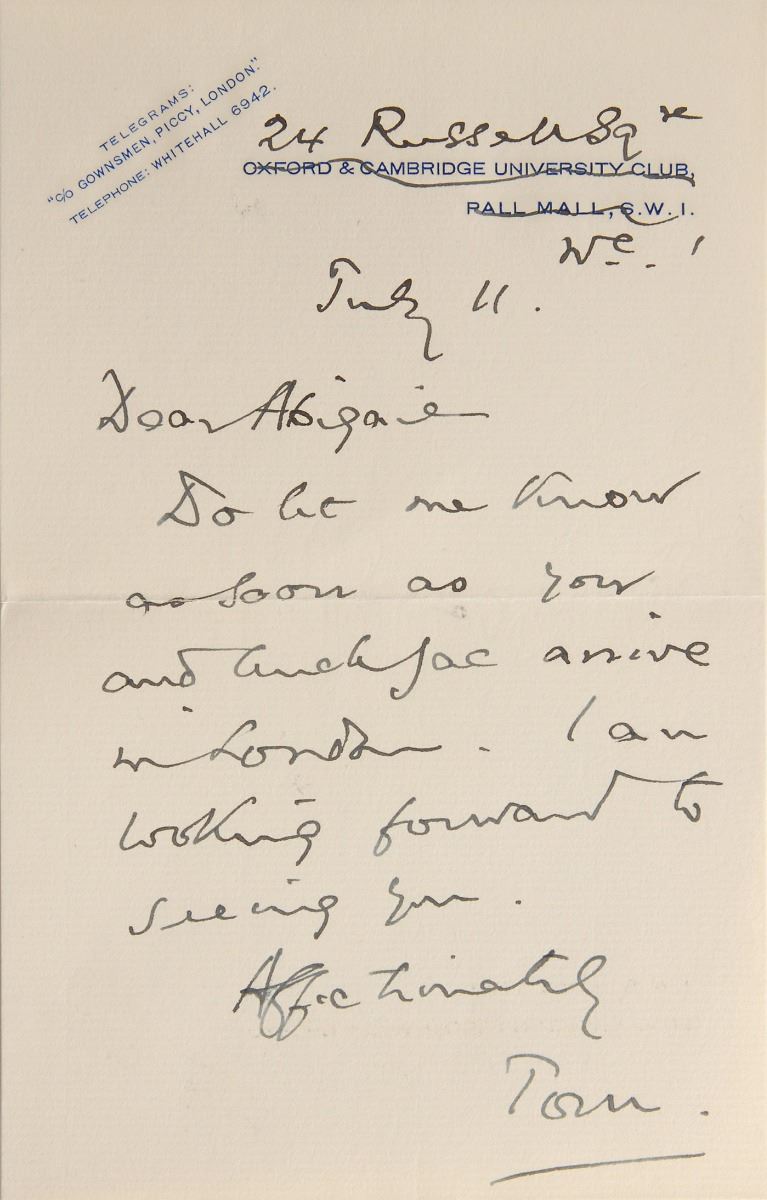 TELEGRAMS:
"C/O GOWNSMEN, PICCY, LONDON."
TELEPHONE: WHITEHALL 6942.
24 Russell Sqre
OXFORD & CAMBRIDGE UNIVERSITY CLUB,
PALL MALL, S.W. 1.
W.C. 1
July 11.
Dear Abigail
Do let me know
as soon as you
and Uncle Jac arrive
in London. I am
looking forward to
seeing you.
Affectionately
Tom.